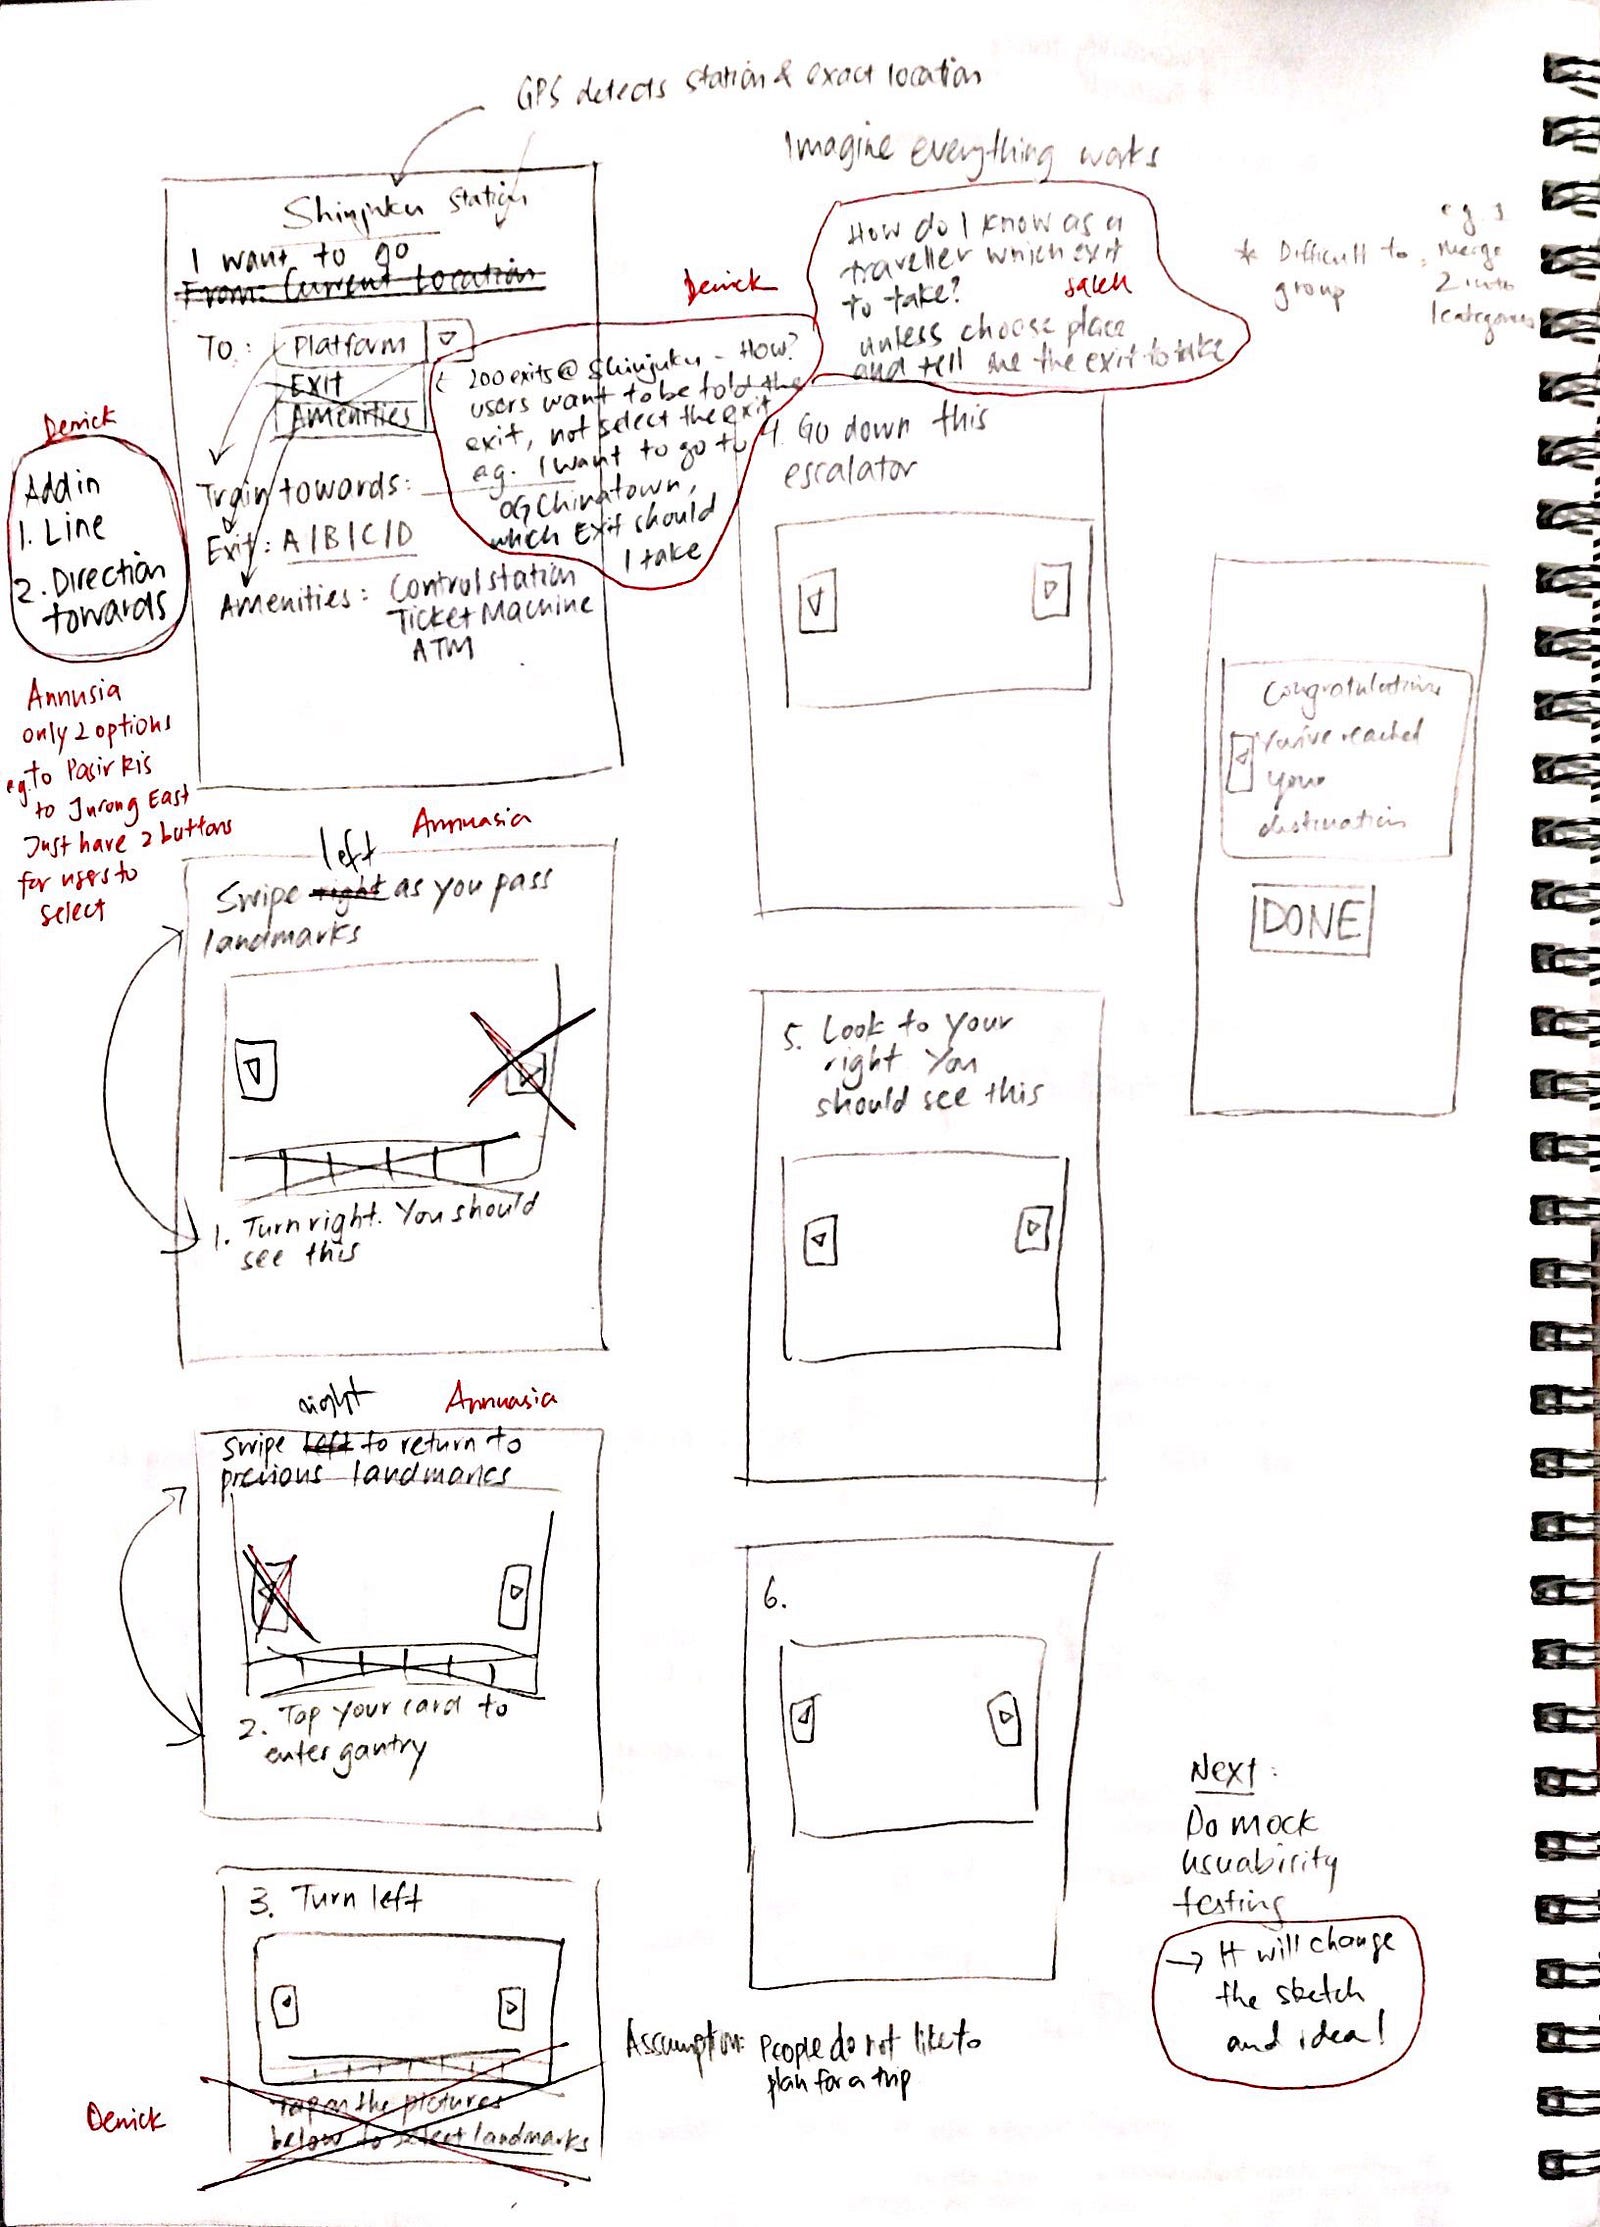 GPS detects station & exact location
Imagine everything works
Shinjuku Station
I want to go
From: Current Location
To: Platform
Exit
Amenities
Train towards:
Exit: A/B/C/D
Amenities: Control station
Ticket Machine
ATM
Derrick
Add in
1. Line
2. Direction
towards
Annusia
only 2 options
e.g. to Pasir Ris
to Jurong East
Just have 2 buttons
for users to
select
Derrick
200 exits @ Shinjuku - How?
users want to be told the
exit, not select the exit
e.g. I want to go to
OG Chinatown,
which Exit should
I take
How do I know as a
traveller which exit
to take?
saleh
unless choose place
and tell me the exit to take
* Difficult to
group
e.g.
merge
2 into
1 categories
Annuasia
left
Swipe right as you pass
landmarks
1. Turn right. You should
see this
right
Annuasia
Swipe left to return to
previous landmarks
2. Tap your card to
enter gantry
3. Turn left
Tap on the pictures
below to select landmarks
Derrick
4. Go down this
escalator
5. Look to your
right You
should see this
6.
Congratulations
You've reached
your
destination
DONE
Assumption: People do not like to
plan for a trip
Next:
Do mock
usuabirity
testing
→ It will change
the sketch
and idea!